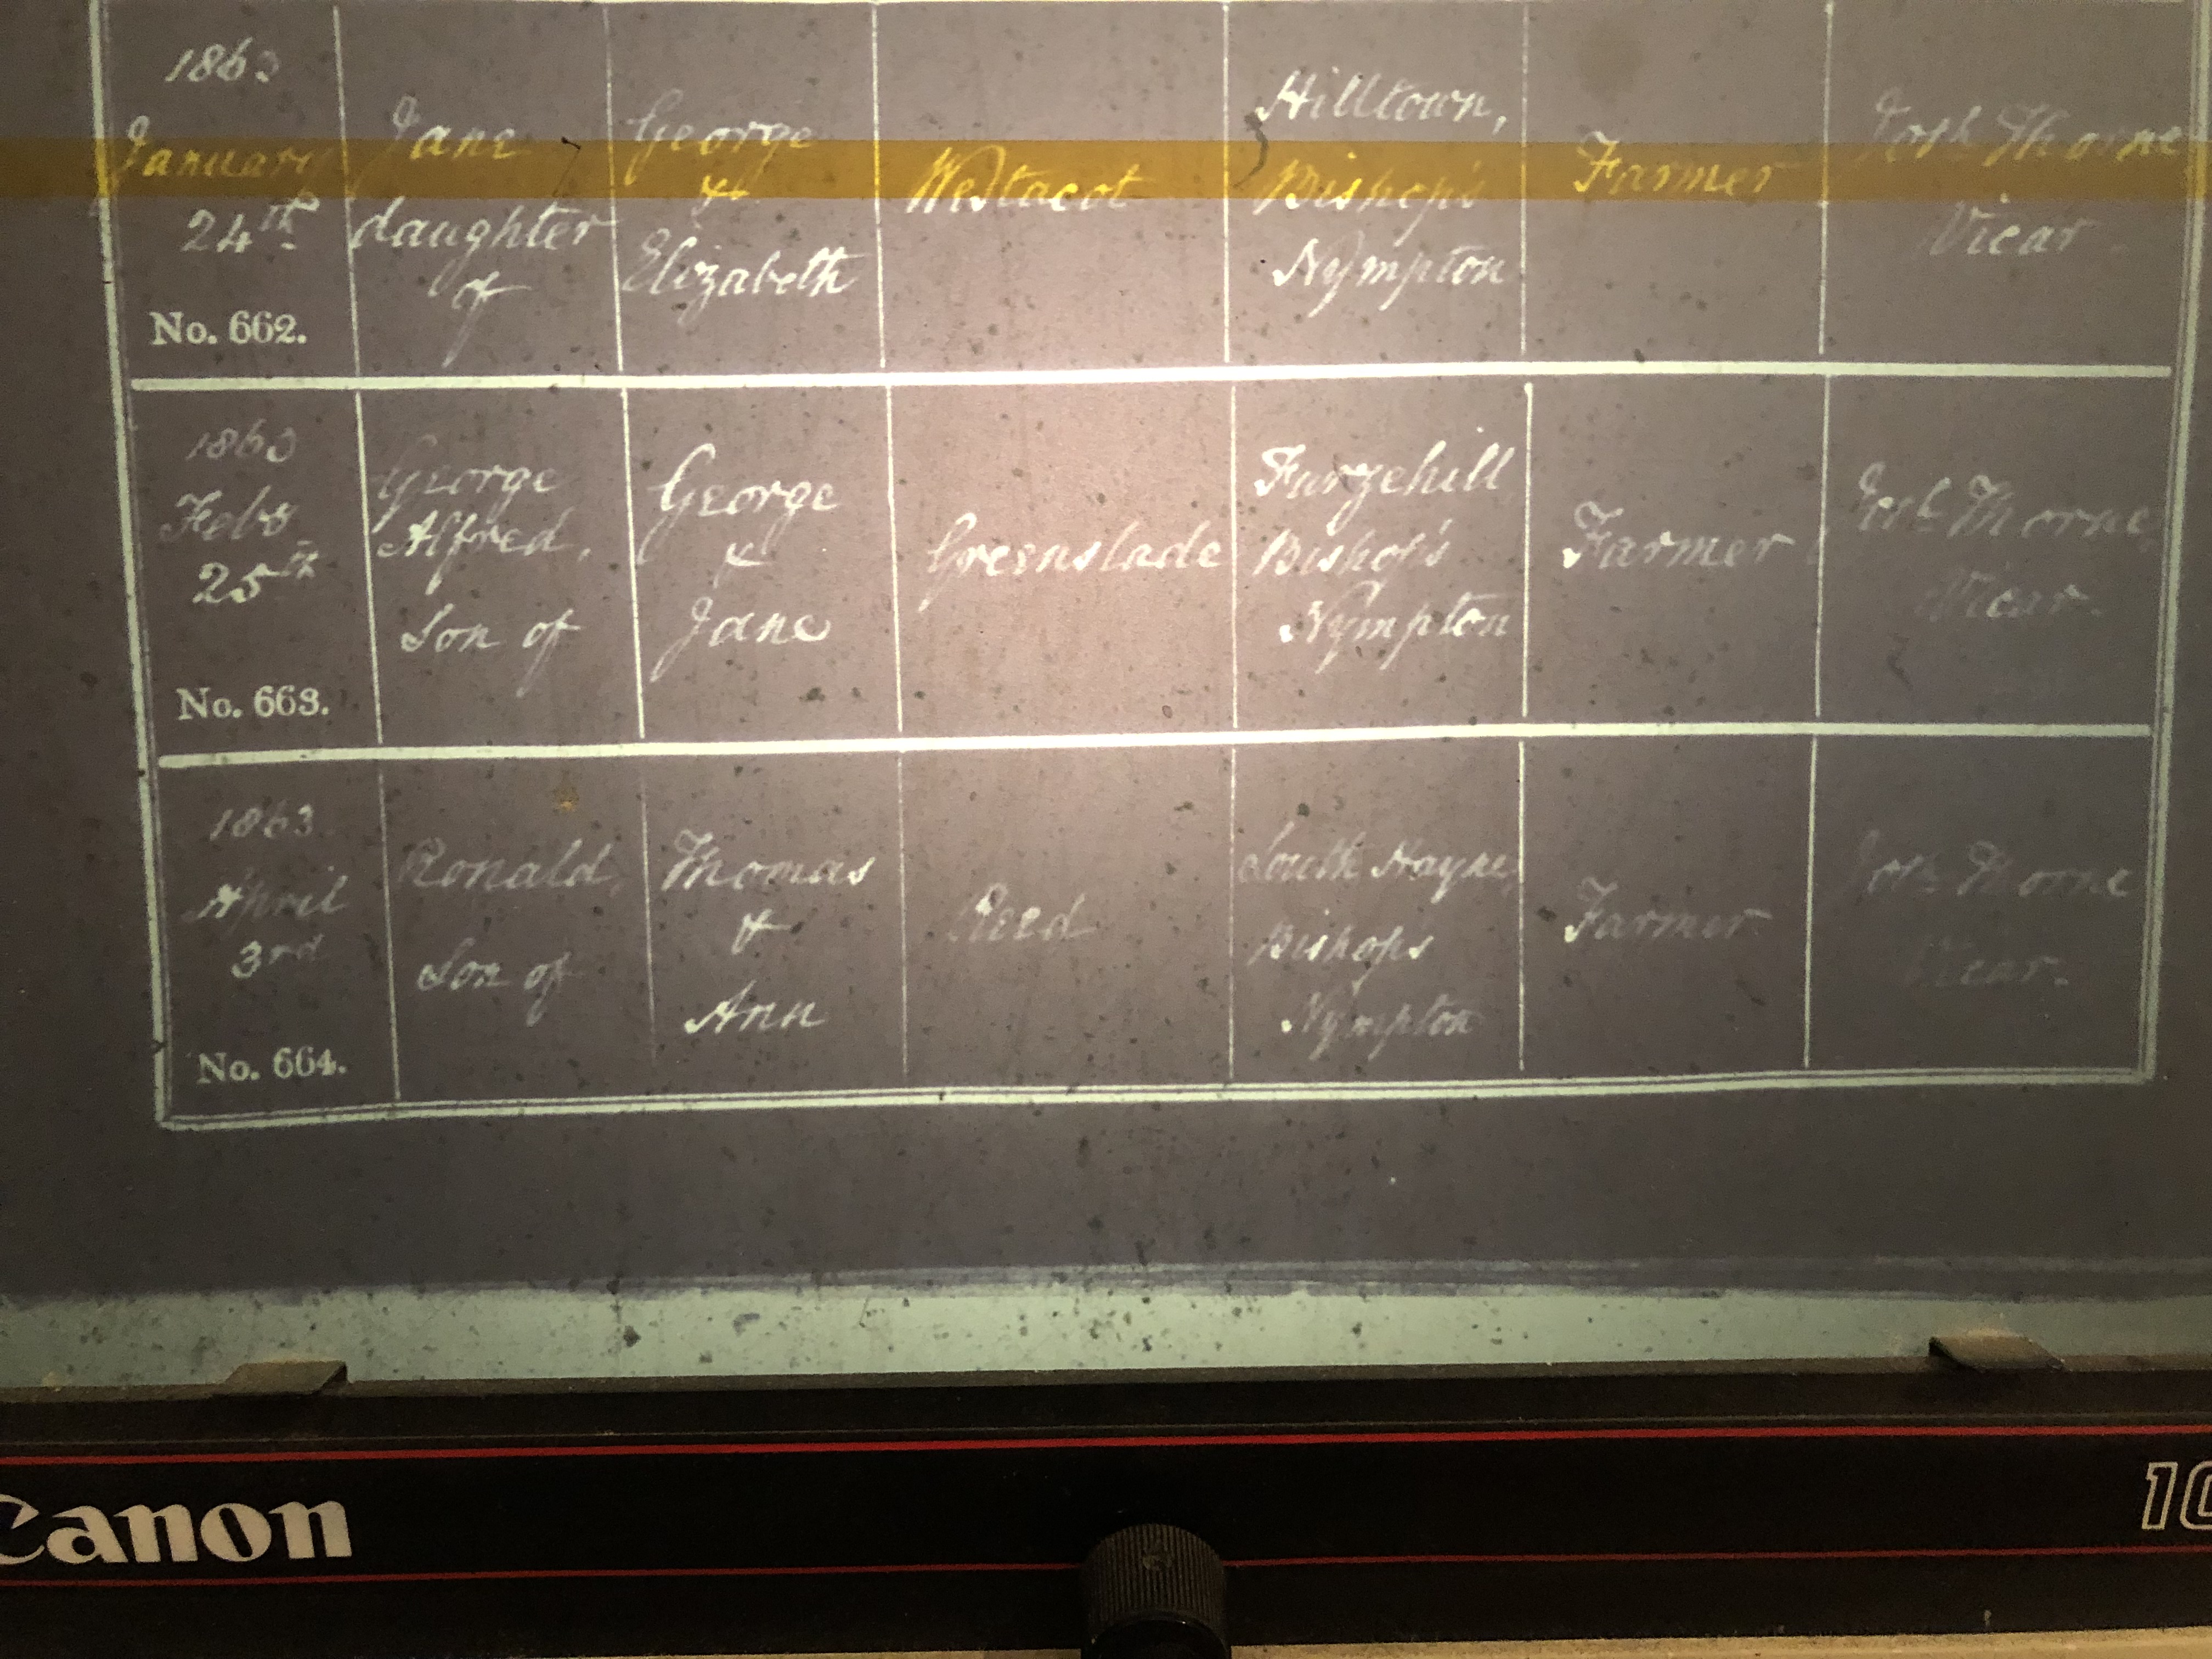 1863
January
24th
No. 662.
Jane
daughter
of
George
&
Elizabeth
Westacot
Hilltown,
Bishop's
Nympton
Farmer
Josh Thorne
Vicar.
1863
Feby
25th
No. 663.
George
Alfred,
Son of
George
&
Jane
Greenslade
Furzehill
Bishop's
Nympton
Farmer
Josh Thorne,
Vicar.
1863
April
3rd
No. 664.
Ronald,
Son of
Thomas
&
Ann
Reed
South Hayne,
Bishop's
Nympton
Farmer
Josh Thorne
Vicar.
Canon
10